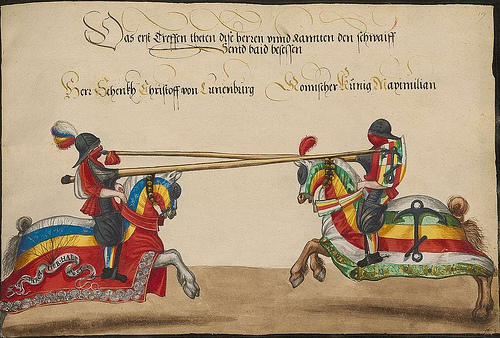 Das erst Treffen theten dise herren vnnd Rannten den schwaiff
Seind baid besessen
Herr Schenkh Christoff von Lunenburg
Romischer Künig Maximilian